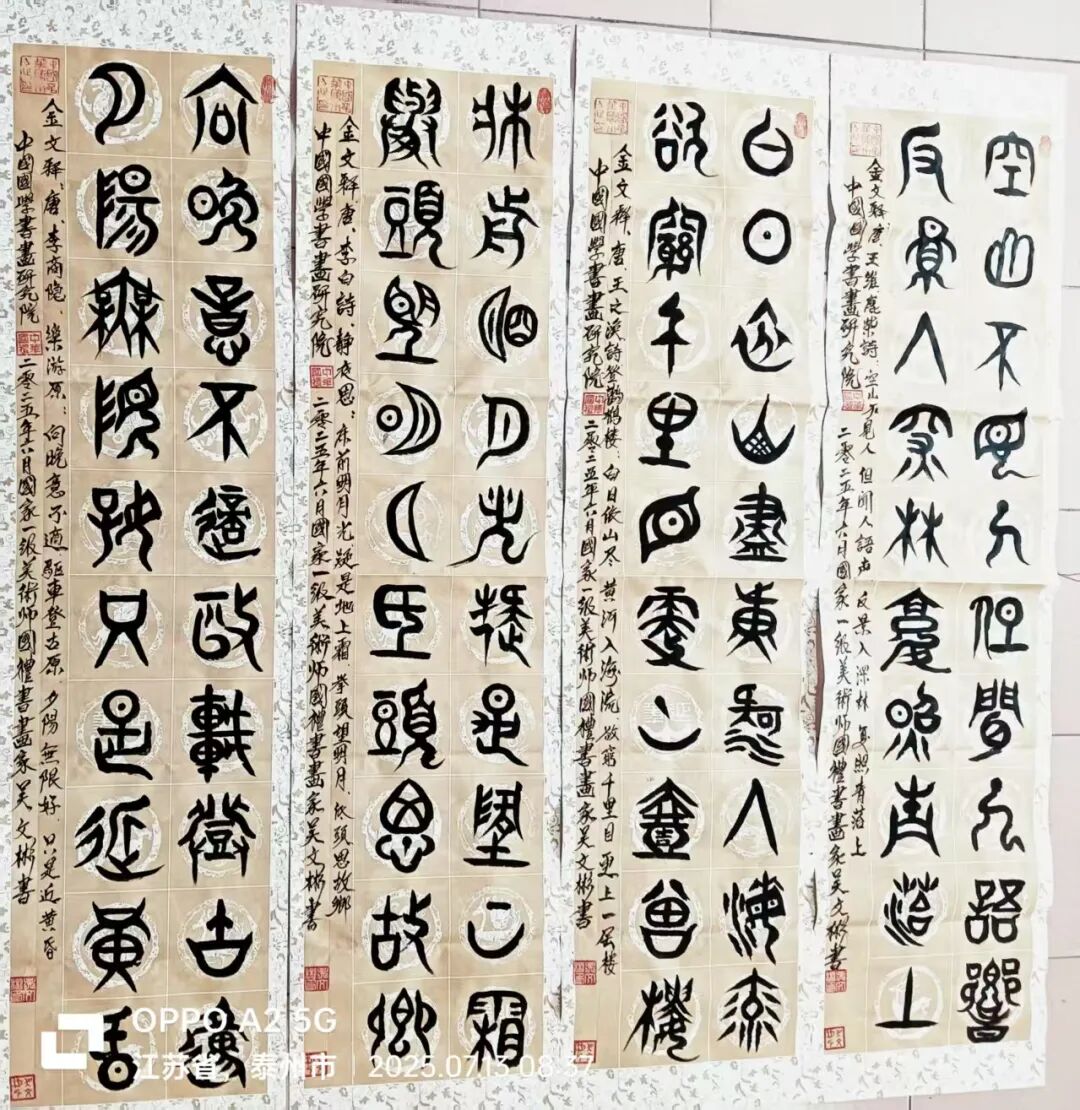 空山不見人但聞人語響
反景入深林復照青苔上
金文释唐、王维鹿柴詩：空山不見人 但闻人語声 反景入深林 复照青苔上
中國國学書畫研究院 二零二五年六月國家一级美術师國禮書畫家吴文彬書
白日依山盡黄河入海流
欲窮千里目更上一層樓
金文释、唐、王之涣詩登鹳鹊楼：白日依山尽 黄河入海流 欲穷千里目 更上一层楼
中國國学書畫研究院 二零二五年六月國家一级美術师國禮書畫家吴文彬書
床前明月光疑是地上霜
舉頭望明月低頭思故鄉
金文释唐、李白詩、静夜思：床前明月光 疑是地上霜 举头望明月 低头思故鄉
中國國学書畫研究院 二零二五年六月國家一级美術师國禮書畫家吴文彬書
向晚意不適驅車登古原
夕陽無限好只是近黄昏
金文释：唐、李商隐、樂游原：向晚意不適 驱車登古原 夕陽無限好 只是近黄昏
中國國学書畫研究院 二零二五年六月國家一级美術师國禮書畫家吴文彬書
OPPO A2 5G
江苏省，泰州市 | 2025.07.13 08:37